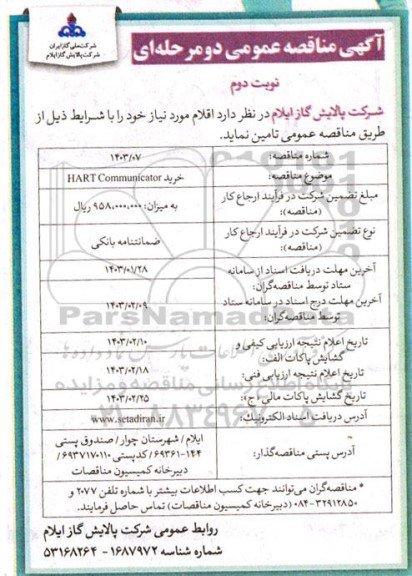 شرکت ملی گاز ایران
شرکت پالایش گاز ایلام
آگهی مناقصه عمومی دو مرحله‌ای
نوبت دوم
شرکت پالایش گاز ایلام در نظر دارد اقلام مورد نیاز خود را با شرایط ذیل از
طریق مناقصه عمومی تامین نماید.
شماره مناقصه: ۱۴۰۳/۰۷
موضوع مناقصه: خرید HART Communicator
مبلغ تضمین شرکت در فرآیند ارجاع کار
(مناقصه): به میزان: ۹۵۸,۰۰۰,۰۰۰ ریال
نوع تضمین شرکت در فرآیند ارجاع کار
(مناقصه): ضمانتنامه بانکی
آخرین مهلت دریافت اسناد از سامانه
ستاد توسط مناقصه‌گران: ۱۴۰۳/۰۱/۲۸
آخرین مهلت درج اسناد در سامانه ستاد
توسط مناقصه‌گران: ۱۴۰۳/۰۲/۰۹
تاریخ اعلام نتیجه ارزیابی کیفی و
گشایش پاکات الف: ۱۴۰۳/۰۲/۱۰
تاریخ اعلام نتیجه ارزیابی فنی: ۱۴۰۳/۰۲/۱۸
تاریخ گشایش پاکات مالی (ج): ۱۴۰۳/۰۲/۲۵
آدرس دریافت اسناد الکترونیک: www.setadiran.ir
آدرس پستی مناقصه‌گذار: ایلام / شهرستان چوار / صندوق پستی
۶۹۳۶۱-۱۴۴ / کدپستی ۶۹۳۷۱۷۰۱۱۰ /
دبیرخانه کمیسیون مناقصات
* مناقصه‌گران می‌توانند جهت کسب اطلاعات بیشتر با شماره تلفن ۲۰۷۷ و
۰۸۴-۳۲۹۱۲۸۵۰ (دبیرخانه کمیسیون مناقصات) تماس حاصل فرمایند.
روابط عمومی شرکت پالایش گاز ایلام
شماره شناسه ۱۶۸۷۹۷۲ - ۵۳۱۶۸۲۶۴
ParsNamadData